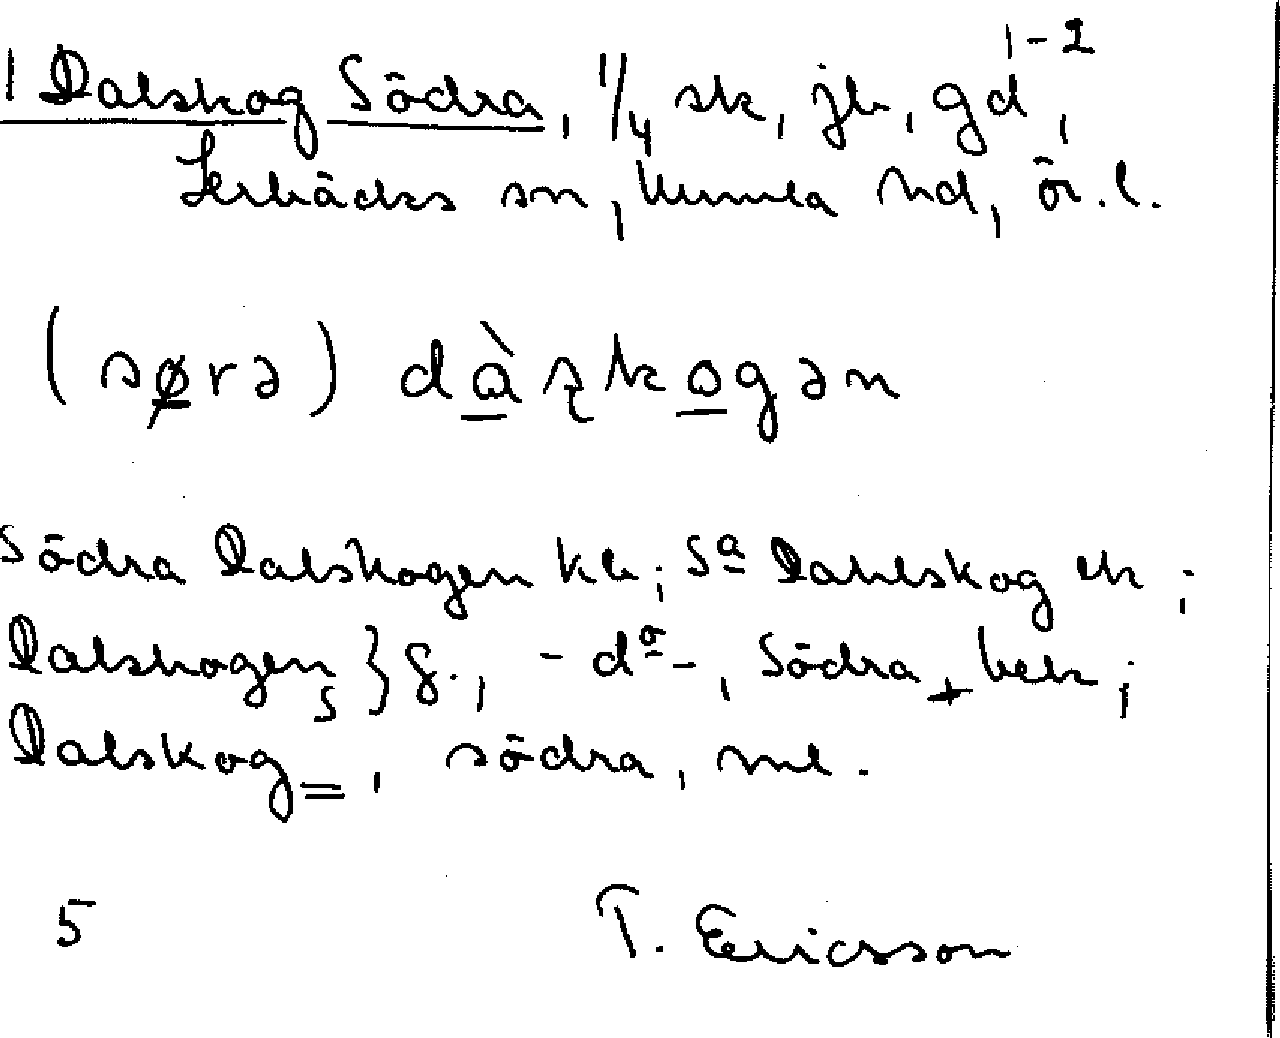 1 Dalskog Södra, 1/4 sk, jb, gd 1-2,
Lerbäcks sn, Kumla hd, Ör. l.
(søra) dàʂkogən
Södra Dalskogen kb; Sa Dahlskog ek;
Dalskogen S } g., - do -, Södra + bek;
Dalskog =, södra, ml.
5 T. Ericsson